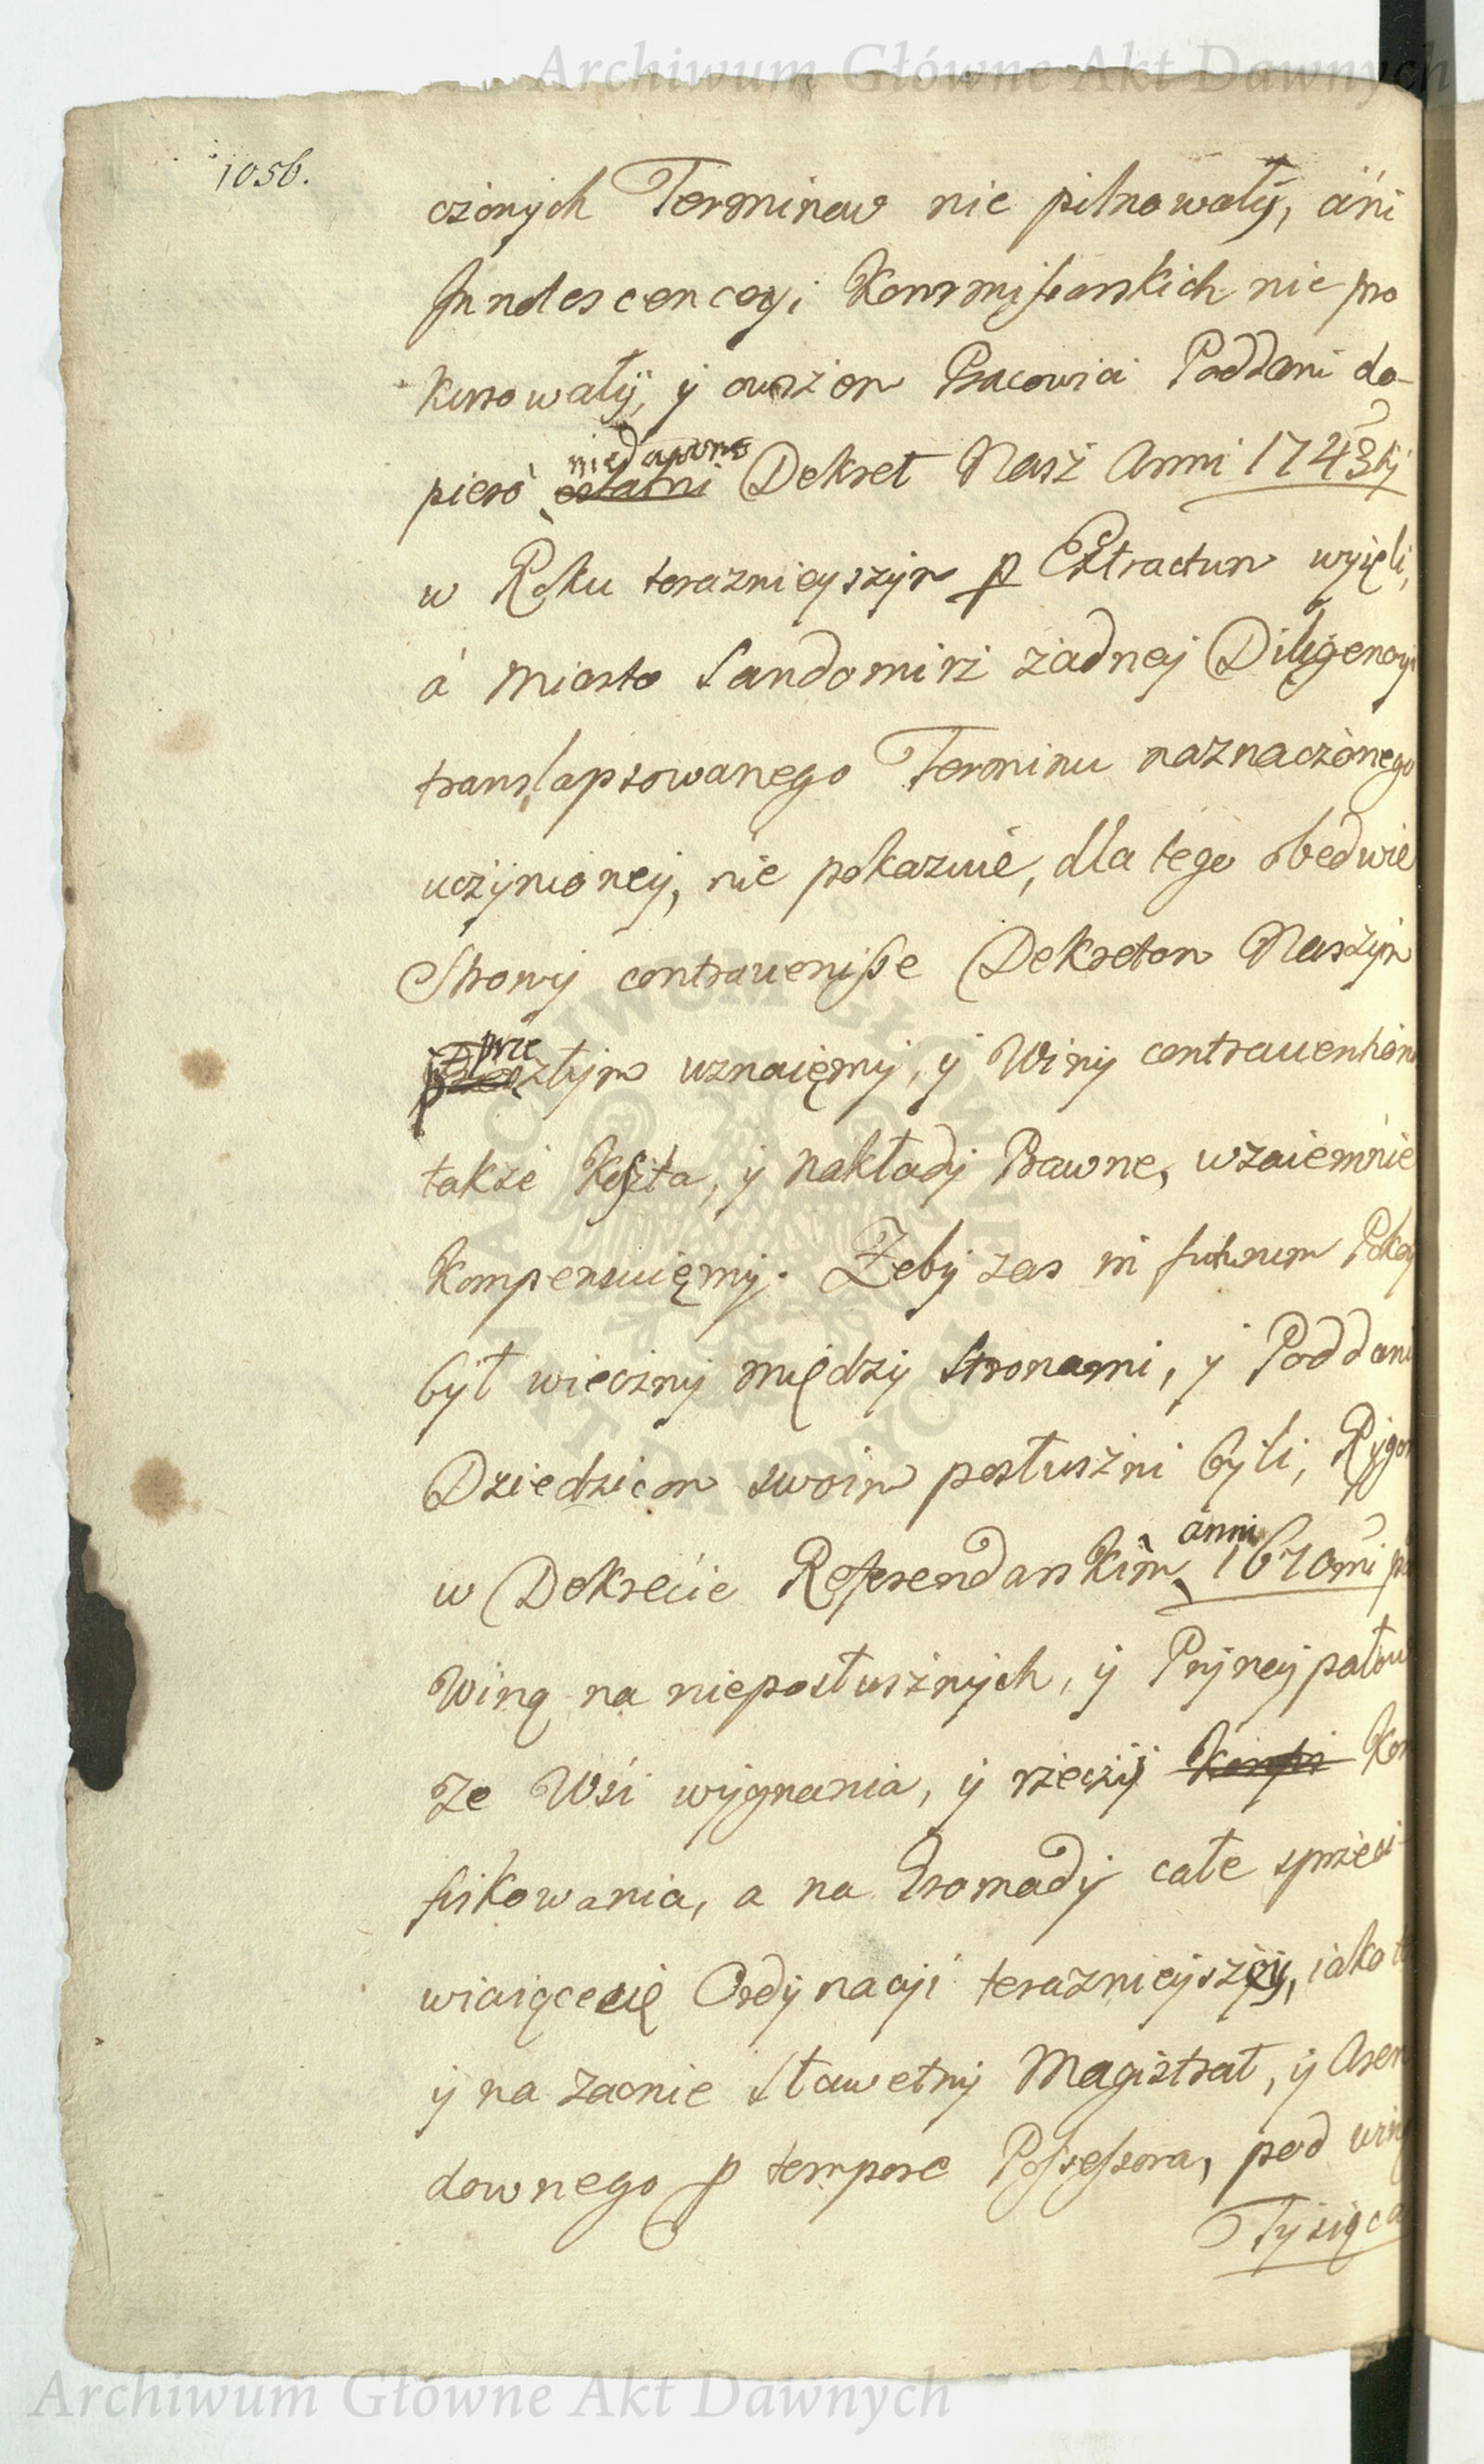 Archiwum Główne Akt Dawnych
1056.
czonych Terminow nie pilnowały, áni
Innotescencyi Kommissarskich nie pro
kurowały, y owszem Pracowici Poddani do-
piero niedawno ostatni Dekret Nasz Anni 1743tij
w Roku teraznieyszym p Extractum wyięli,
á Miasto Sandomirz żadney Diligencyi
translapsowanego Terminu naznaczonego
uczynioney, nie pokazuie, dla tego obedwie
Strony contravenisse Dekretom Naszym
prze szłym uznaięmy, y Winy contraventionu
także Koszta, y nakłady Prawne, wzaiemnie
kompensuięmy. Żeby zas in futurum Pokoy
był wieczny między Stronami, y Poddani
Dziedzicom swoim posłuszni byli, Rygor
w Dekrecie Referendarskim anni 1670mi p
Winą na nieposłusznych, y Prynypałow
ze Wśi wygnania, y rzeczy Kon
fiskowania, a na Gromady całe sprzeci-
wiaiące się Ordynacyi teraznieyszey, iako t
y na zacnie Sławetny Magistrat, y Aren
downego p tempore Possessora, pod winą
Tysiąca
ARCHIWUM GŁÓWNE AKT DAWNYCH
Archiwum Główne Akt Dawnych